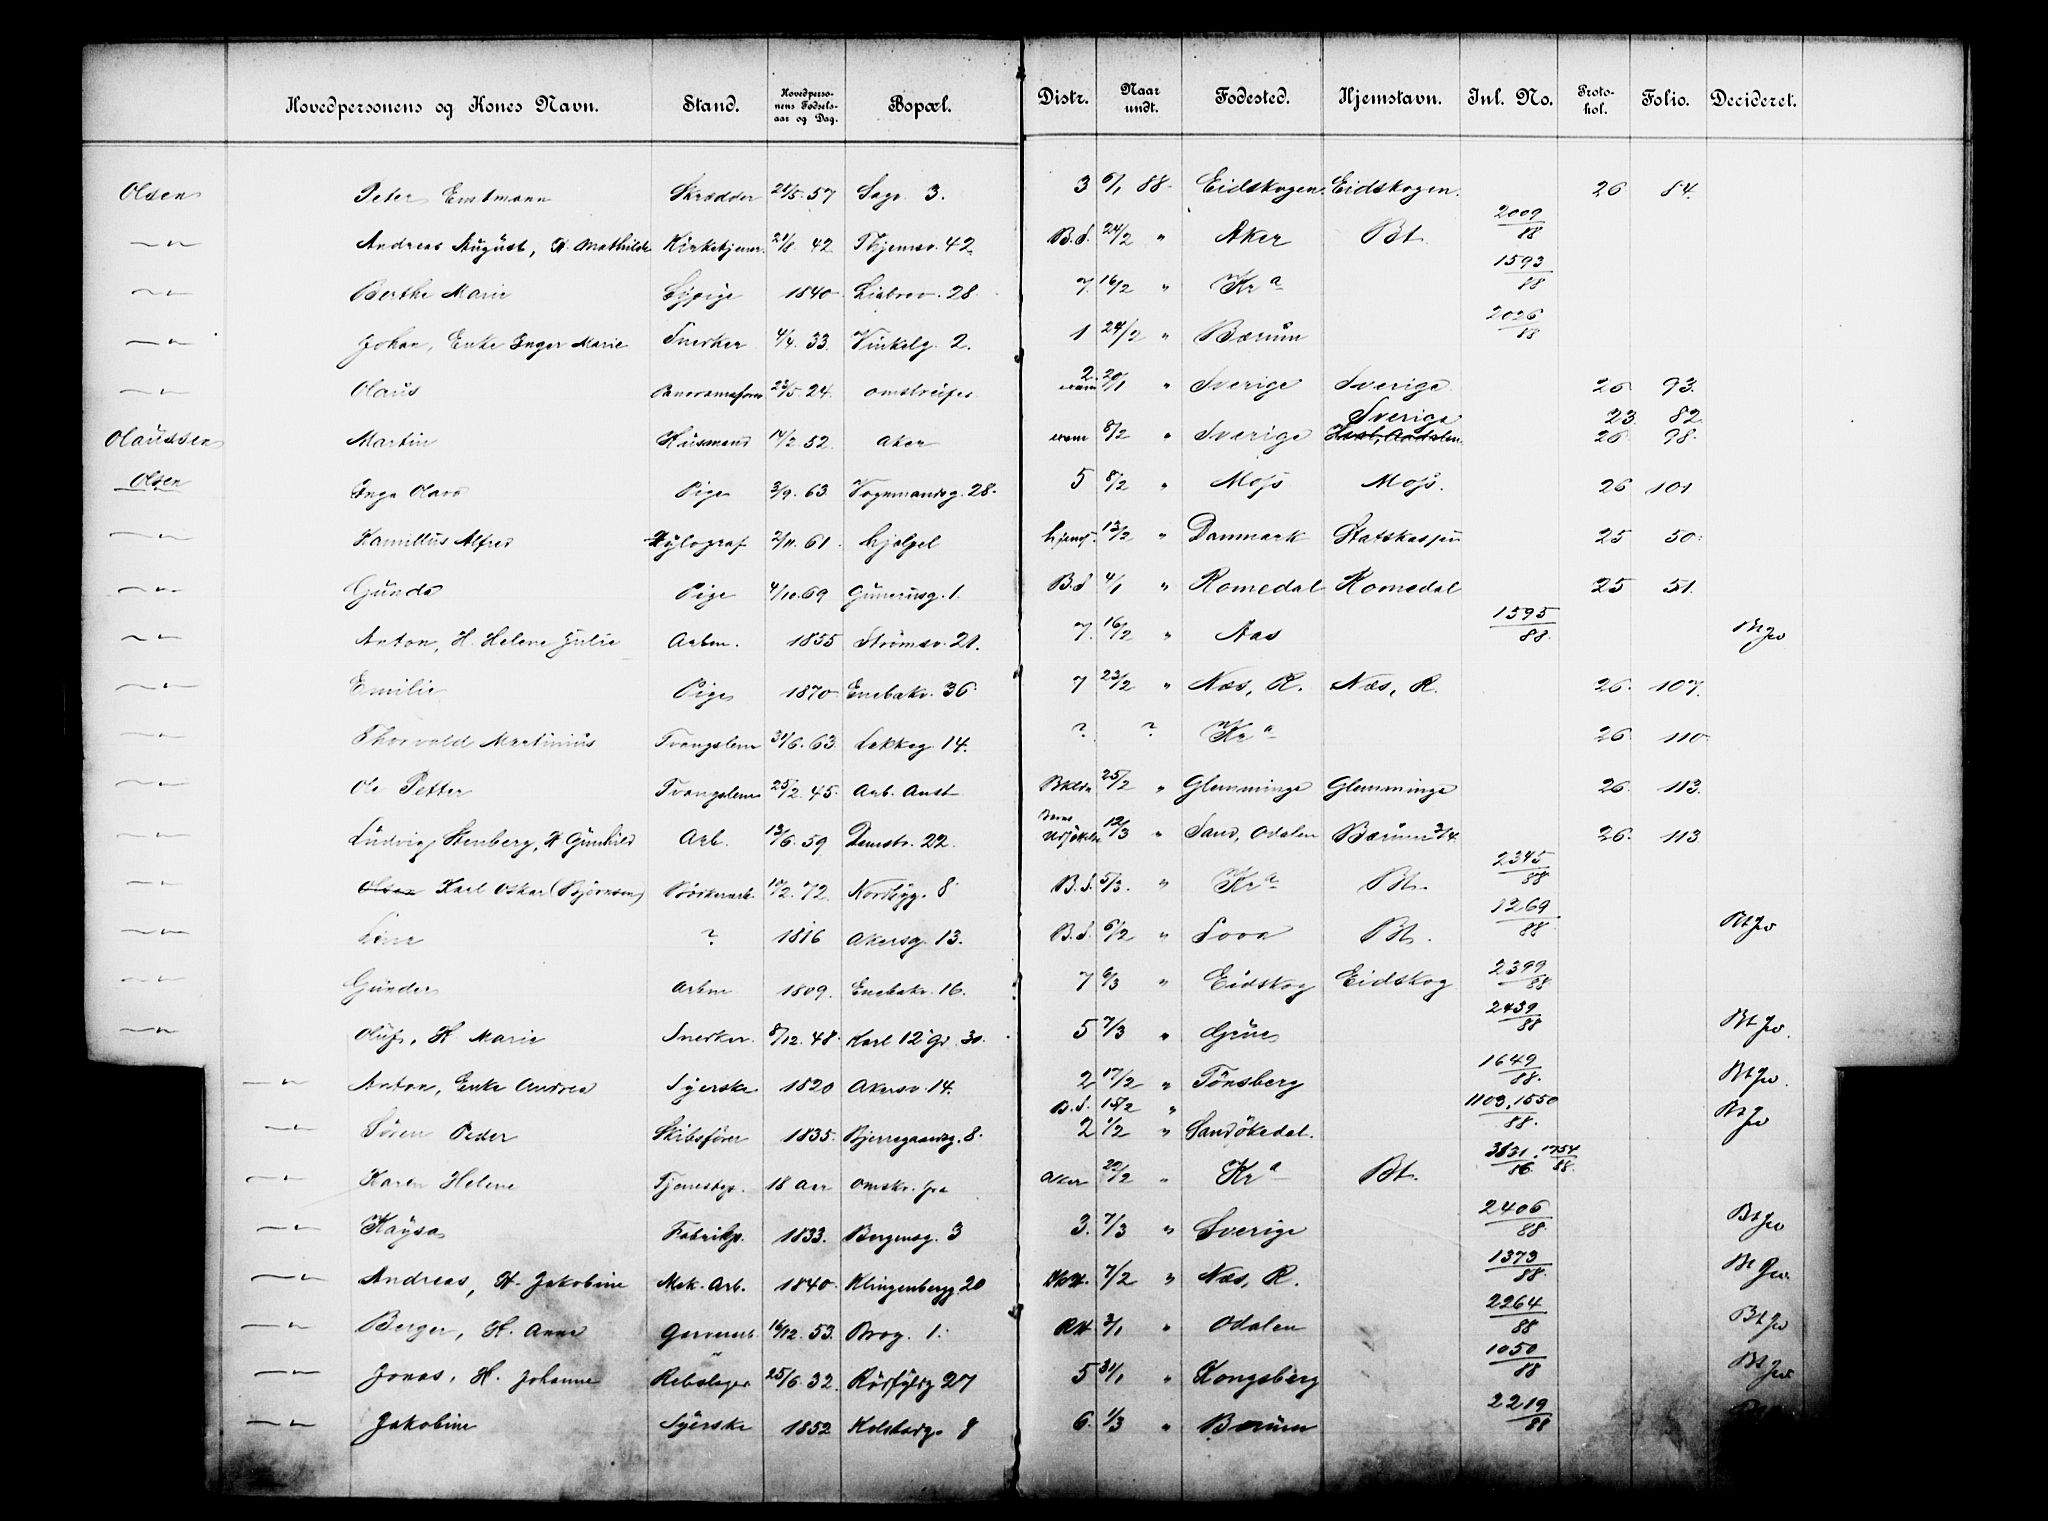 Hovedpersonens og Kones Navn. Stand. Hovedpersonens Fødselsaar og Dag. Bopæl. Distr. Naar undt. Fødested. Hjemstavn. Jnl. No. Protokol. Folio. Decideret.
Olsen Peter Skrædder 21/5 57 3. 3 6/1 88. Eidskogen. Eidskogen. 26 84.
—"— Andreas August, H. Mathilde 21/8 42. 42 B.S. 24/2 " Aker Bt. 2009/88
—"— Berthe Marie 1840 28. 7. 16/2 " Kr a 1593/88
—"— Johan, Enke Inger Marie Snedker 4/4. 33. Vinkelg. 2. 1 24/2 " Bærum 2026/88
—"— Olaus 23/5. 24. omstreifer 2. 20/1 " Sverige Sverige 26 93.
Olaussen Martin Husmand 14/2 52. Aker 8/2 " Sverige Sverige 23 82 26 98.
Olsen Inga Pige 3/9. 63. Vognmandsg. 28. 5 8/2 " Moss Moss. 26 101
—"— Kamillus Alfred Xylograf 2/11. 61. 13/2 " Danmark Statskassen 25 50.
—"— Gunda Pige 4/10. 69 Gunerusg. 1. B.S 4/1 " Romedal Romedal 25 51.
—"— Anton, H. Helene Julie Arbm. 1855 Strømsv. 21. 7. 16/2 " Aas 1595/88. Bt Jw
—"— Emilie Pige 1870 Enebakv. 36 7 23/2 " Næs, R. Næs, R. 26. 107.
—"— Thorvald Martinius Tvangslem 31/6. 63. Lakkeg. 14. ? ? Kr a 26. 110
—"— Ole Petter Tvangslem 25/2. 45. Arb. Anst 25/2 " Glemminge Glemminge 26. 113.
—"— Ludvig Stenberg, H. Gunhild Arb. 13/6. 59 22. 12/3 " Sand, Odalen Bærum 3/4. 26. 113
—"— Olsen Karl Oskar (Bjørnsen) 10/2. 72. Nordbyg. 8 B.S. 5/3. " Kr a Bt. 2345/88
—"— Lina ? 1816 Akersg. 13. B.S. 6/2 " Bt. 1269/88. Bt Jw
—"— Gunder Arbm 1809. Enebakv. 16. 7 6/3 " Eidskog Eidskog 2399/88
—"— Oluf, H. Marie Snedker. 8/12. 48. Karl 12 G. 30. 5 7/3 " Grue 2439/88 Bt Jw.
—"— Anton, Enke Andrea Syerske 1820 Akersv. 14. 2 17/2 " Tønsberg 1649/88. Bt Jw.
—"— Søren Peder Skibsfører 1835. Bjerregaardsg. 8. B.S. 15/2 " 2 1/2 " Sandøkedal. 1103, 1550/88. Bt Jw
—"— Karen Helene 18 Aar Aker 22/2 " Kr a Bt. 3831/86. 1754/88.
—"— Kaysa Fabrikp. 1833. Bergensg. 3 3. 7/3 " Sverige 2406/88. Bt Jw
—"— Andreas, H. Jakobine Mek. Arb. 1840 Klingenbergg. 20 7/2 " Næs, R. 1373/88. Bt Jw.
—"— Berger, H. Anne Garverarb. 16/12. 53. Brog. 1. 3/1 " Odalen 2264/88 Bt Jw
—"— Jonas, H. Johanne Rebslager 25/6. 32. Rødfyldg 27 5 31/1 " Kongsberg 1050/88 Bt Jw
—"— Jakobine Syerske 1852 8 6. 1/3 " Bærum 2219/88